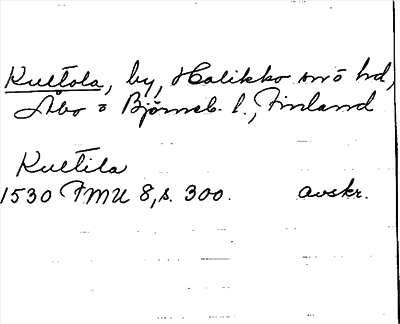 Kultola, by, Halikko snö hd,
Åbo o Björneb. l., Finland
Kultila
1530 FMU 8, s. 300. avskr.